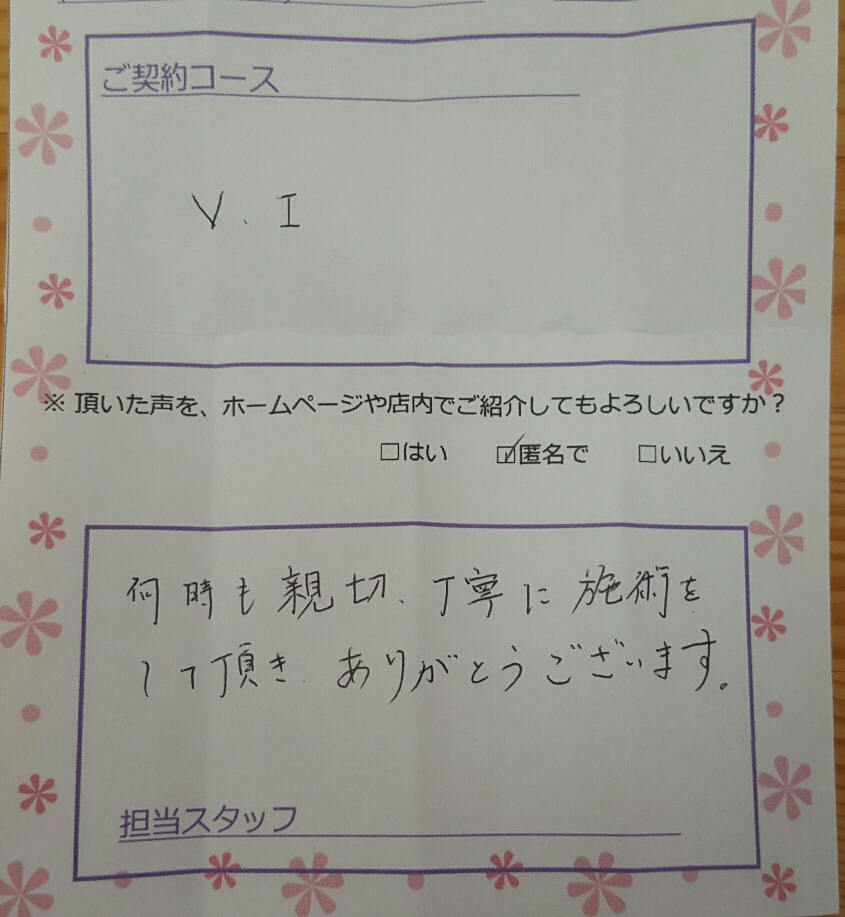 ご契約コース
V. I
※ 頂いた声を、ホームページや店内でご紹介してもよろしいですか？
□はい ☑匿名で □いいえ
何時も親切、丁寧に施術を
して頂き、ありがとうございます。
担当スタッフ